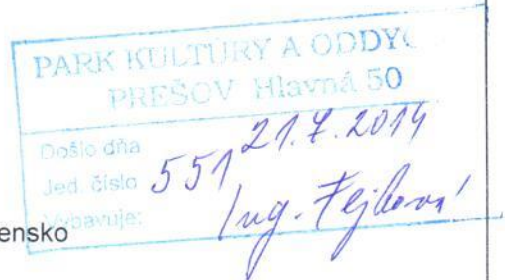 PARK KULTÚRY A ODDY
PREŠOV Hlavná 50
Došlo dňa 21.7.2014
Jed. číslo 551
Vybavuje: Ing.
ensko